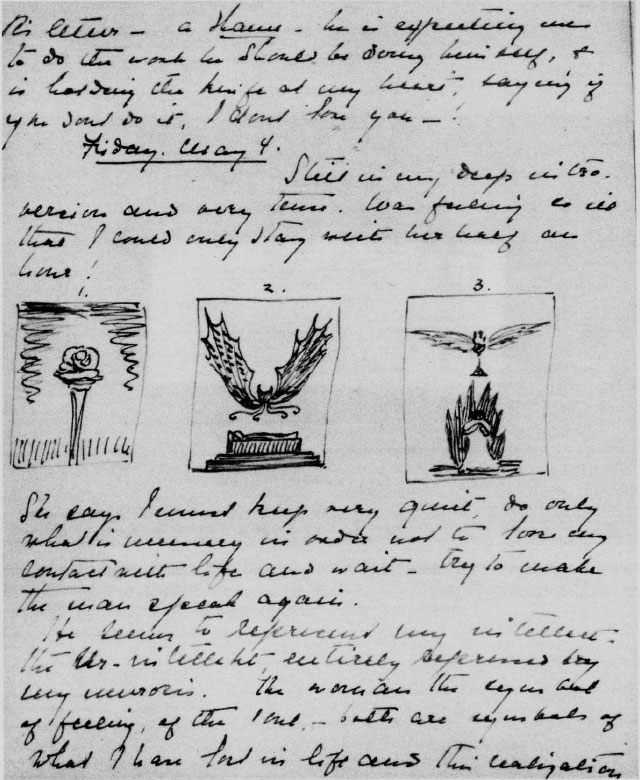 letters – a shame – he is expecting me
to do the work he should be doing himself, &
is holding the knife at my heart, saying if
you dont do it, I dont love you – !
Friday. May 4.
Still in my deep intro-
version and very tense. Was feeling so ill
that I could only stay with her half an
hour!
1. 2. 3.
She says I must keep very quiet, do only
what is necessary in order not to lose my
contact with life and wait – try to make
the man speak again.
He seems to represent my intellect.
the Ur-intellect, entirely by
my neurosis. The woman the symbol
of feeling, of the soul, – both are symbols of
what I have lost in life and this realization